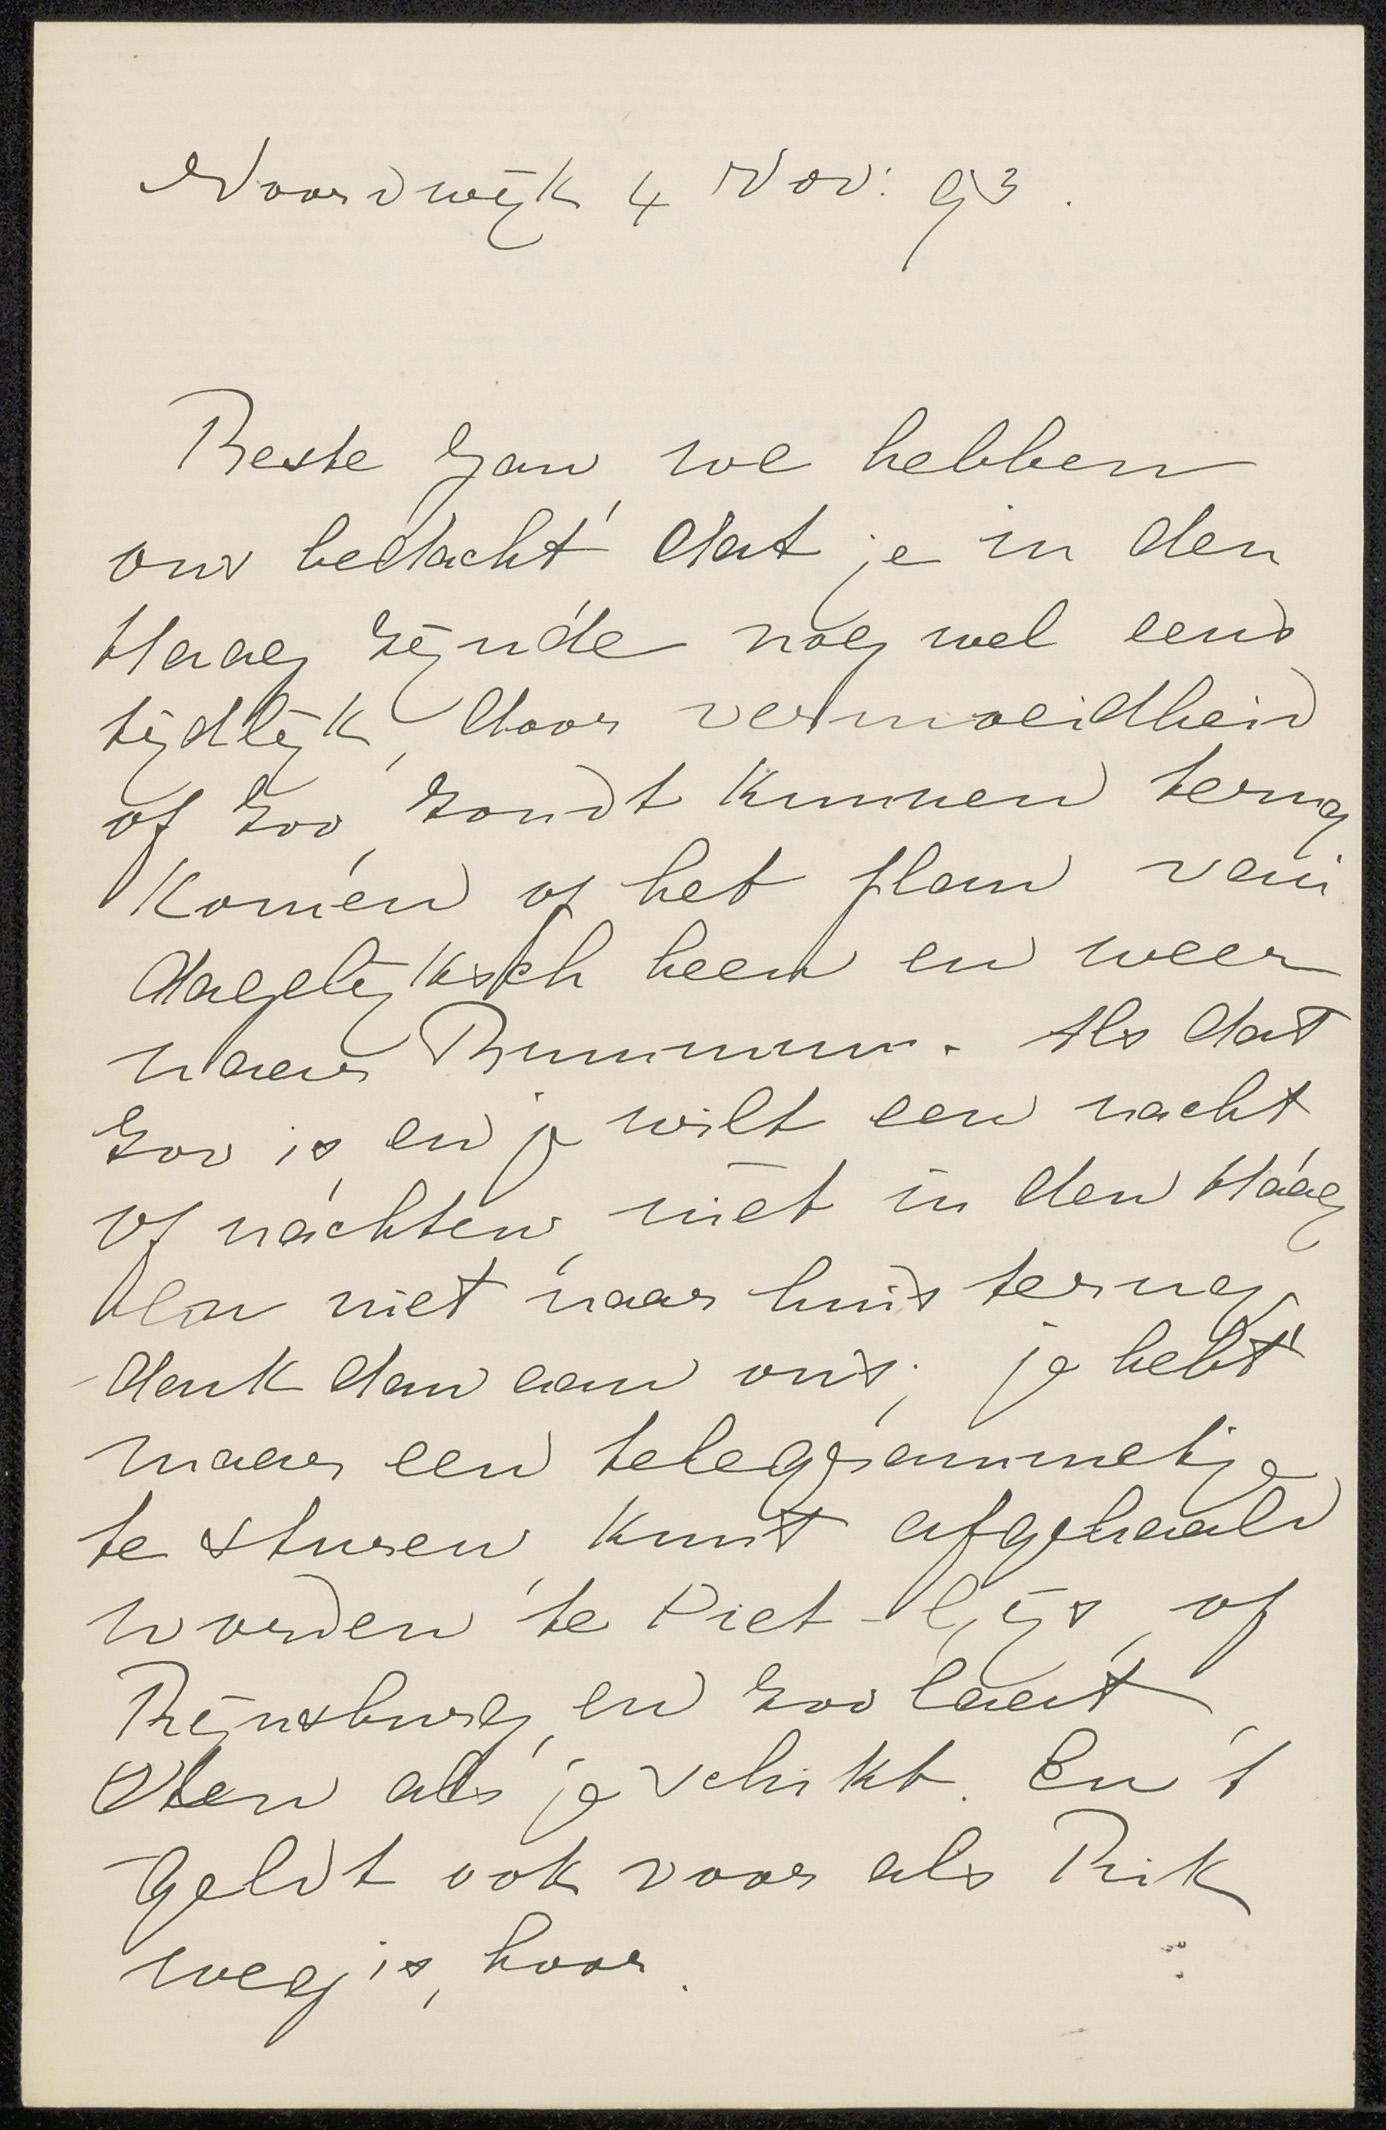 Noordwijk 4 Nov: 93.
Beste Jan, we hebben
ons bedacht dat je in den
Haag zijnde nog wel eens
tijdlijk, door vermoeidheid
of zoo, zoudt kunnen terug
komen op het plan van
dagelijksch heen en weer
naar Bussum. Als dat
zoo is, en je wilt een nacht
of nachten, niet in den Haag
en niet naar huis terug,
denk dan aan ons; je hebt
maar een telegrammetje
te sturen, kunt afgehaald
worden te Piet-Gijs, of
Rijnsburg, en zoo laat
eten als je schikt. En 't
geldt ook voor als Rik
weg is, hoor.